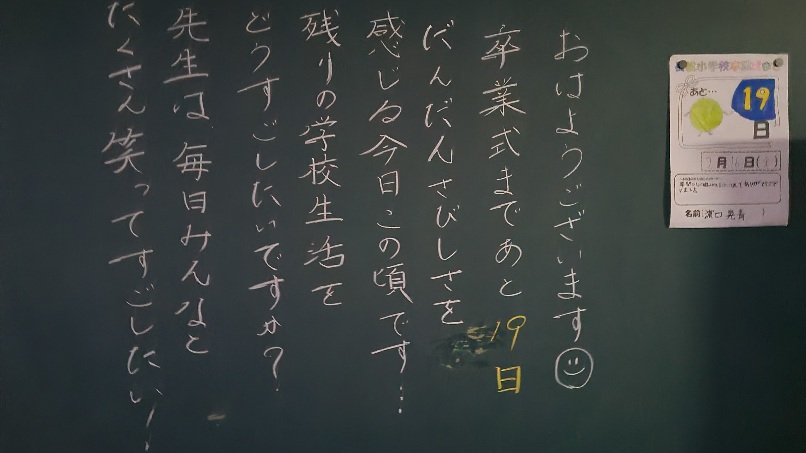 おはようございます
卒業式まであと19日
だんだんさびしさを
感じる今日この頃です…
残りの学校生活を
どうすごしたいですか?
先生は、毎日みんなと
たくさん笑ってすごしたい!
小学校卒業
あと…
19
日
月 日
名前